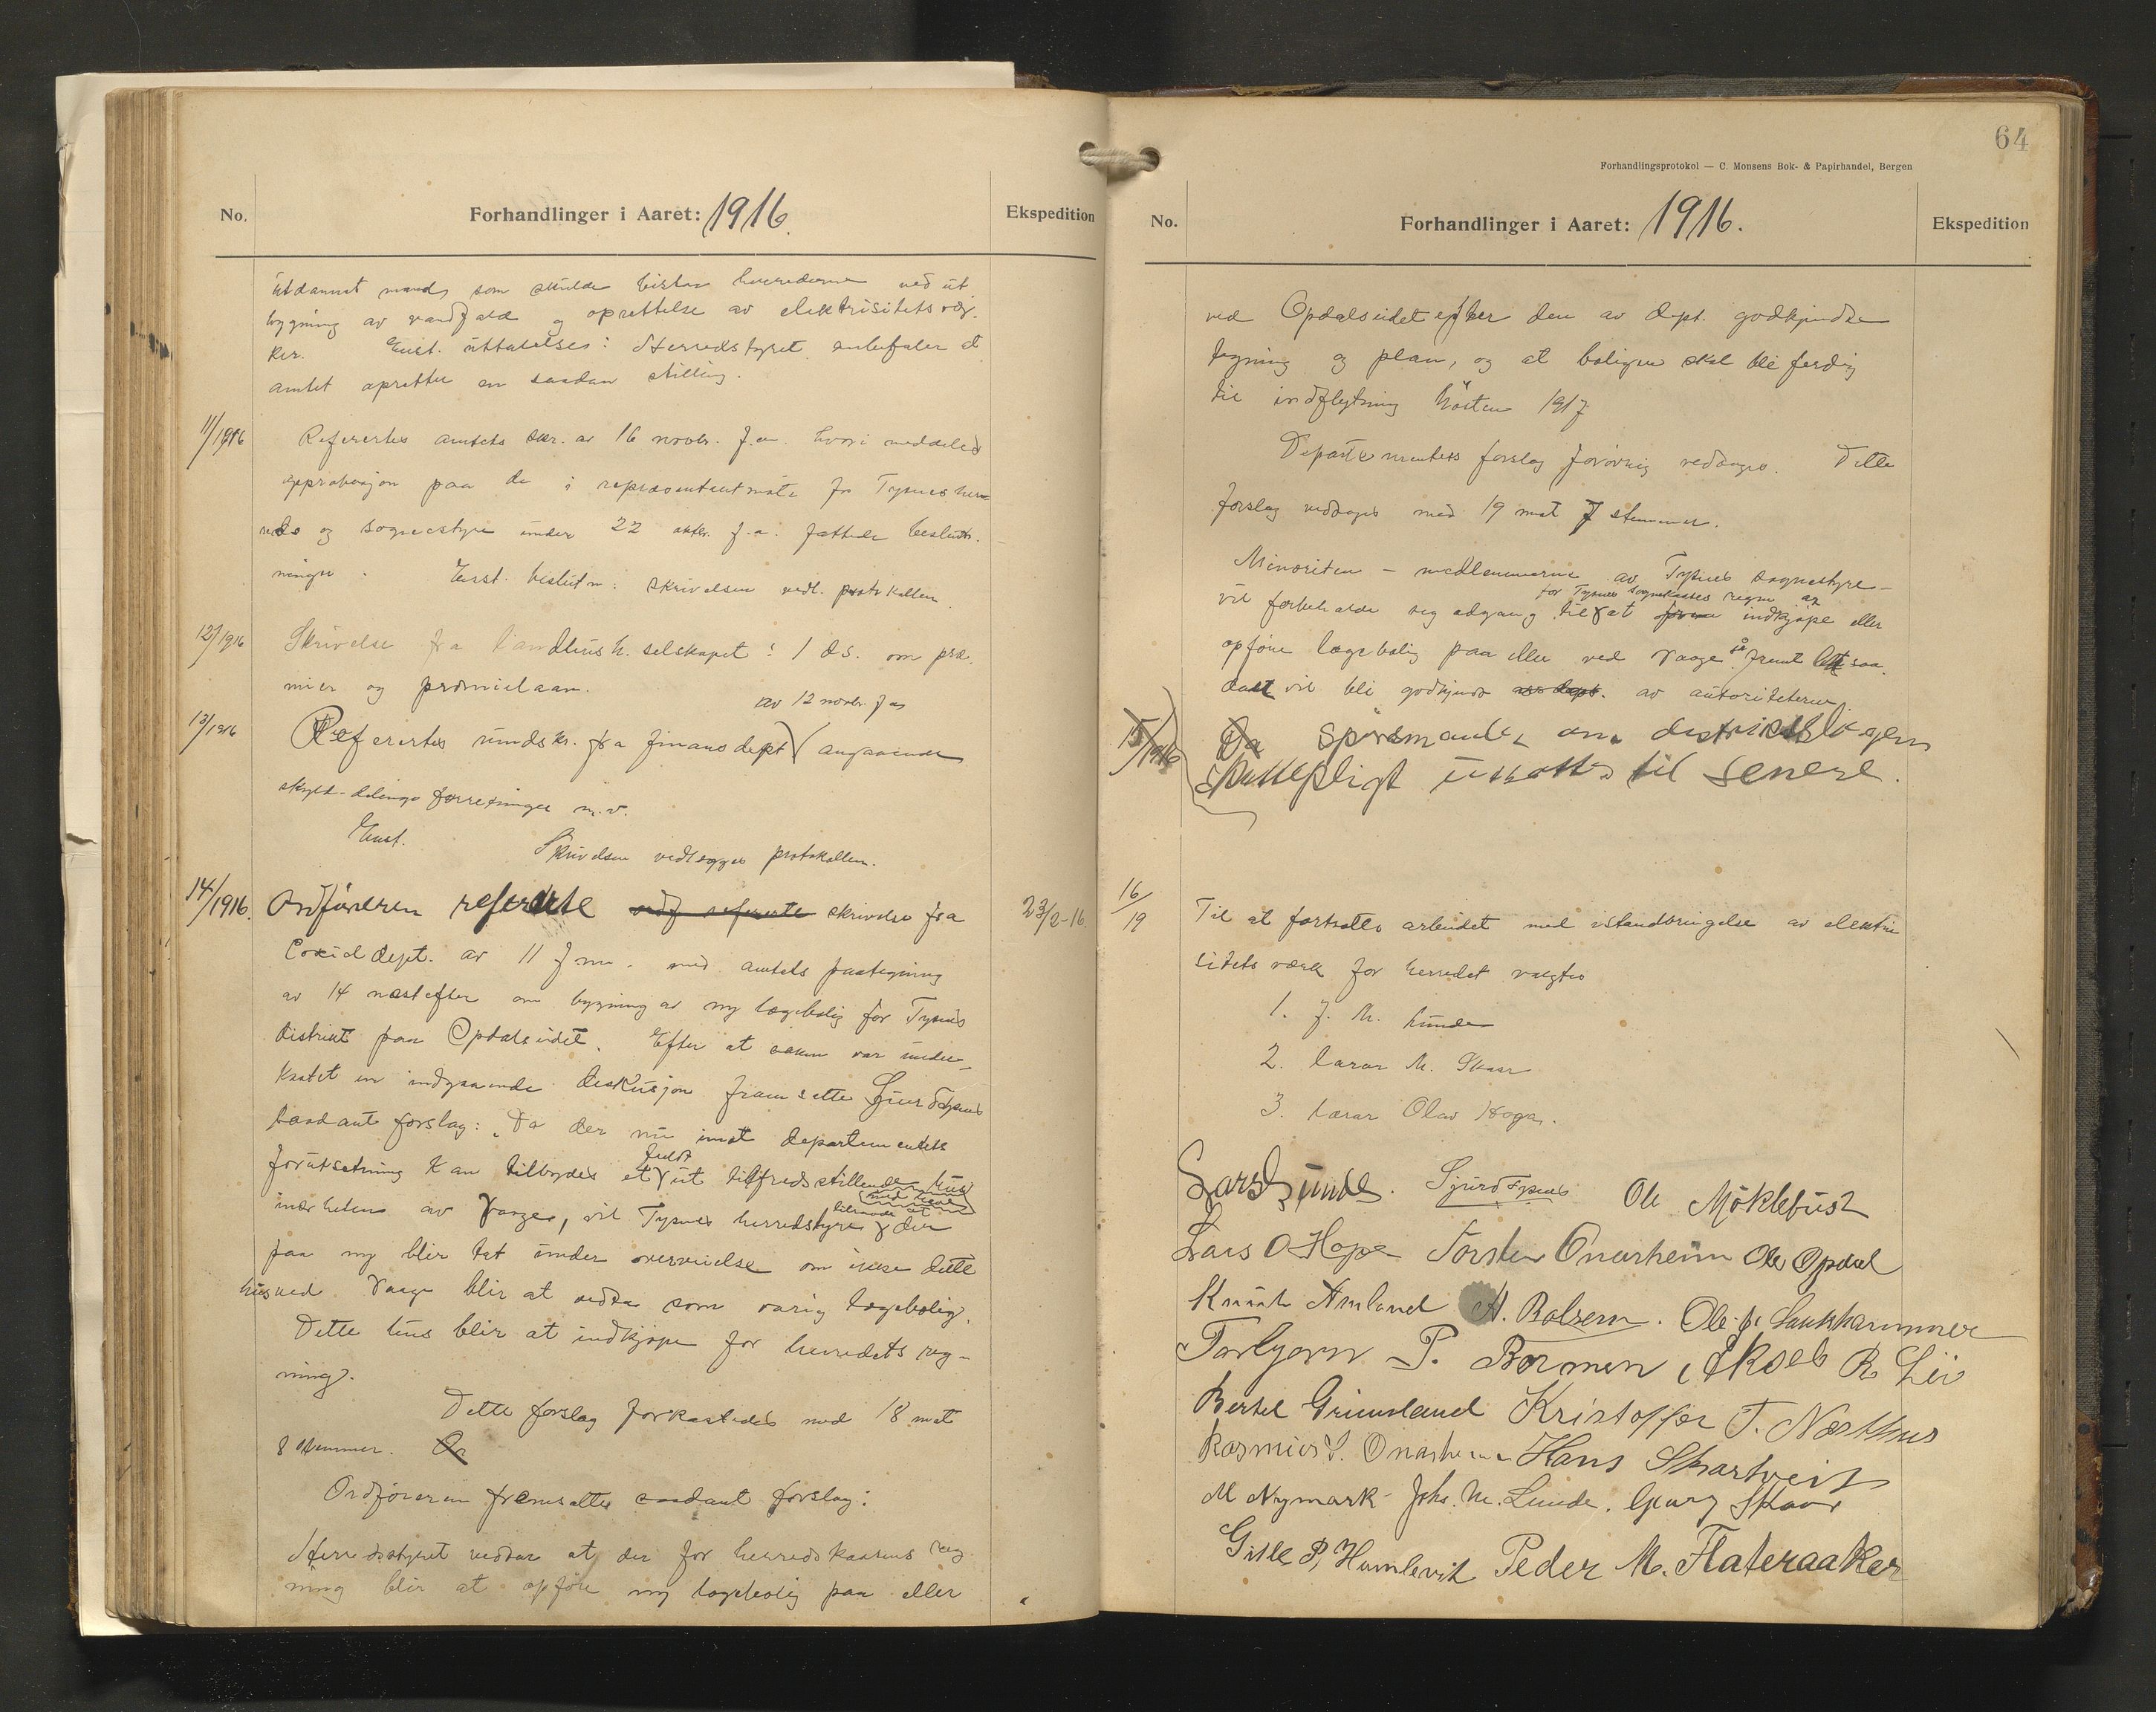 No. Forhandlinger i Aaret: 1916. Ekspedition
utdannet mand, som skulde bistaa herrederne ved ut
bygning av vandfald og oprettelse av elektrisitetsvær-
ker. Enst. uttalelse: Herredstyret anbefaler at
amtet opretter en saadan stilling.
11/1916 Refertes amtets skr. av 16 novbr. f.a. hvori meddeles
approbasjon paa de i repræsentantmøte for Tysnes her-
reds og sognestyre under 22 oktbr. f.a. fattede beslut-
ninger. Enst. beslutn: skrivelsen vedl. protokollen.
12/1916 Skrivelse fra landhush. selskapet: 1 ds. om præ-
mier og præmielaan.
av 12 novbr. f.a.
13/1916 Refertes rundskr. fra finansdept angaaende
skyld-delings forretninger m.v.
Enst. Skrivelsen vedlegges protokollen.
14/1916. Ordføreren refererte ordf refererte skrivelse fra 23/2-16.
Socialdept. av 11 f.m. med amtets paategning
av 14 næstefter om bygning av ny lægebolig for Tysnes
distrikt paa Opdalseidet. Efter at saken var under-
kastet en indgaaende diskusjon framsatte Sjur Tysnes
saadant forslag: "Da der nu imot departementets
forutsetning kan tilbydes et fuldt ut tilfredsstillende hus
med have
i nærheten av Vaage, vil Tysnes herredstyre tilraade at der
paa ny blir tat under overveielse om ikke dette
hus ved Vaage blir at vedta som varig lægebolig.
Dette hus blir at indkjøpe for herredets reg-
ning.
Dette forslag forkastedes med 18 mot
8 stemmer. Or
Ordføreren fremsatte saadant forslag:
Herredsstyret vedtar at der for herredskassens reg-
ning blir at opføre ny lægebolig paa eller
64
Forhandlingsprotokol — C. Monsens Bok- & Papirhandel, Bergen
No. Forhandlinger i Aaret: 1916. Ekspedition
ved Opdalseidet efter den av dept. godkjendte
tegning og plan, og at boligen skal bli færdig
til indflytning høsten 1917.
Departementets forslag forøvrig vedtages. Dette
forslag vedtages med 19 mot 7 stemmer.
Minoriteten - medlemmerne av Tysnes sognestyre -
for Tysnes sognekasses regn. at
vil forbeholde sig adgang til at indkjøpe eller
opføre lægebolig paa eller ved Vaage så framt saa
dant vil bli godkjendt av dept. av autoriteterne.
15/1916 Da Spørsmaalet om distriktslægens
skattepligt utsattes til senere.
16/19 Til at fortsætte arbeidet med istandbringelse av elektri
sitetsværk for herredet valgtes
1. J. M. Lunde
2. lærar M. Skaar
3. lærar Olav Hoga.
Lars Lunde. Sjurd Tysnes Ole Møklebust
Lars O Hope Torsten Onarheim Ole Opdal
Knut Amland H. Balsem. Ole Sankhammer
Torbjørn P. Bormen, R Lie
Bertel Grimsland Kristoffer T. Næsthus
Rasmus S. Onarheim Hans Skartveit
M Nymark Johs. M. Lunde. Georg Skaar
Gitle P. Humlevik Peder M. Flateraaker